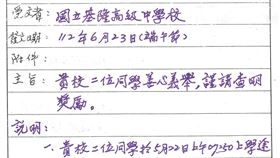 受文者：國立基隆高級中學校
發文日期：112年6月23日(端午節)
附件：
主旨：貴校二位同學善心義舉，謹請查明
獎勵。
説明：
一、貴校二位同學於5月22日上午07:50上學途